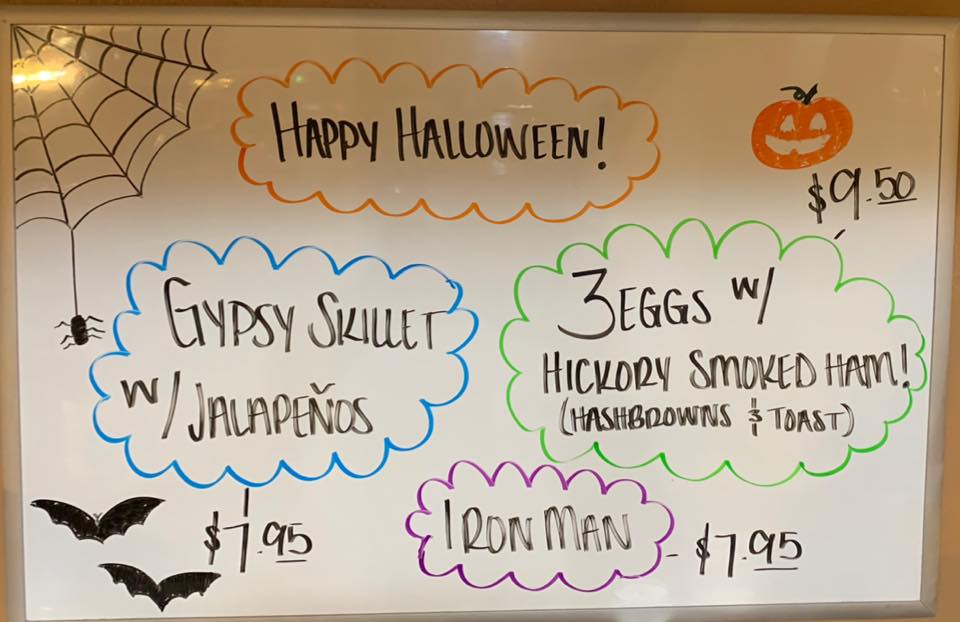 HAPPY HALLOWEEN!
$9.50
GYPSY SKILLET
W/ JALAPEÑOS
$7.95
3 EGGS W/
HICKORY SMOKED HAM!
(HASHBROWNS & TOAST)
IRON MAN - $7.95